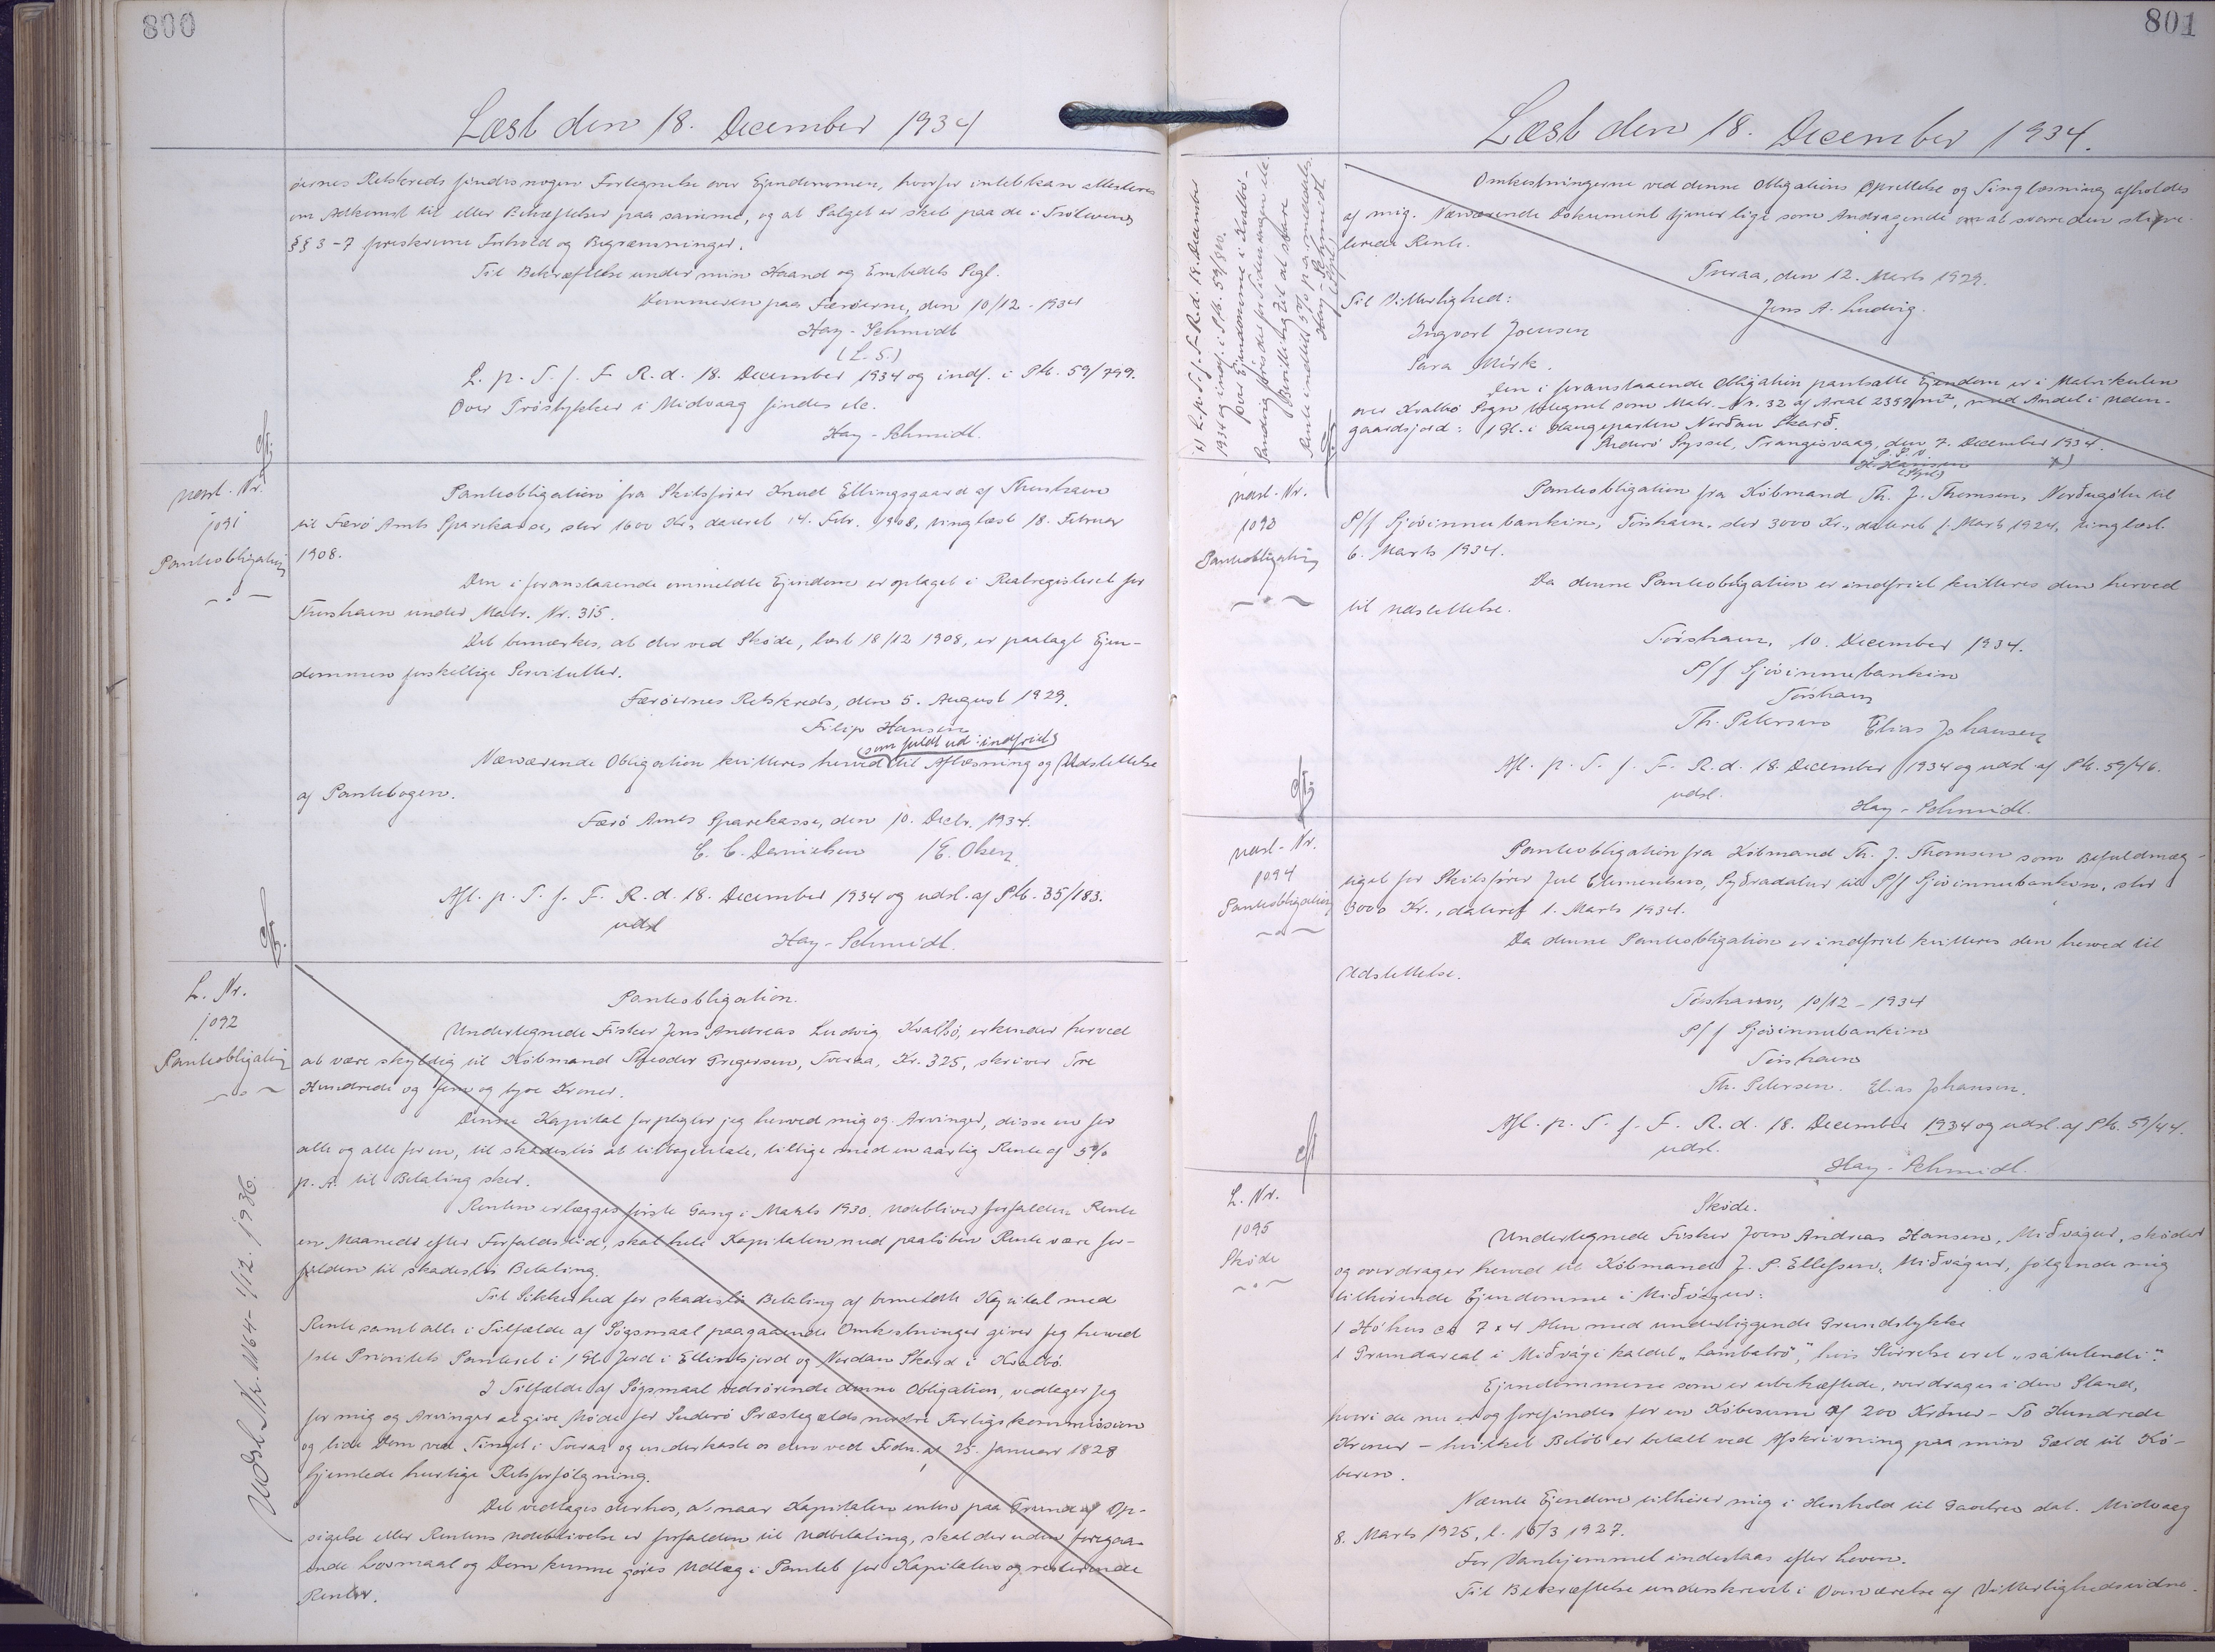 800
Læst den 18. December 1934
øernes Retskreds findes nogen Fortegnelse over Ejendommen, hvorfor intet kan attesteres
om Adkomst til eller Behæftelser paa samme, og at Salget er sket paa de i Trölovens
§§ 3-7 foreskrevne Forhold og Begrænsninger.
Til Bekræftelse under min Haand og Embedets Segl.
paa Færöerne, den 10/12 - 1934
Hay-Schmidt
(L. S.)
L. p. T. f. F. R. d. 18. December 1934 og indf. i Ptb. 59/799.
Over Tröstykker i Midvaag findes etc.
Hay-Schmidt.
Udsl. Nr.
1091
Panteobligation
Panteobligation fra Skibsförer Knud Ellingsgaard af Thorshavn
til Færö Amts Sparekasse, stor 1600 Kr, dateret 14. Febr. 1908, tinglæst 18. Februar
1908.
Den i foranstaaende ommeldte Ejendom er optaget i Realregisteret for
Thorshavn under Matr. Nr. 315.
Det bemærkes, at der ved Sköde, læst 18/12 1908, er paalagt Ejen-
dommen forskellige Servitutter.
Færöernes Retskreds, den 5. August 1929.
Filip Hansen
(som fuldt ud indfriet)
Nærværende Obligation kvitteres herved til Aflæsning og Udslettelse
af Pantebogen.
Færö Amts Sparekasse, den 10. Decbr. 1934.
C. C. Danielsen /E. Olsen
Afl. p. T. f. F. R. d. 18. December 1934 og udsl. af Ptb. 35/183.
udsl
Hay-Schmidt.
L. Nr.
1092
Panteobligation
Udsl. Nr. 1164 - 1/12. 1936.
Panteobligation.
Undertegnede Fisker Jens Andreas Ludvig Kvalbö, erkender herved
at være skyldig til Köbmand Theodor Gregersen, Tveraa, Kr. 325, skriver Tre
Hundrede og fem og tyve Kroner.
Denne Kapital forpligter jeg herved mig og Arvinger, disse en for
alle og alle for en, til skadeslös at tilbagebetale, tillige med en aarlig Rente af 5%
p. A. til Betaling sker.
Renten erlægges förste Gang i Marts 1930. Udebliver forfalden Rente
en Maaned efter Forfaldstid, skal hele Kapitalen med paalöben Rente være for-
falden til skadeslös Betaling.
Til Sikkerhed for skadeslös Betaling af bemeldte Kapital med
Rente samt alle i Tilfælde af Sögsmaal paagaaende Omkostninger giver jeg herved
1ste Prioritets Panteret i 1 Gl. Jord i Ellintsjord og Nordan Skard i Kvalbö.
I Tilfælde af Sögsmaal vedrörende denne Obligation, vedtager jeg
for mig og Arvinger at give Möde for Suderö Præstegælds nordre Forligskommission
og lide Dom ved Tinget i Tveraa og underkaste os den ved Frdn. af 25. Januar 1828
hjemlede hurtige Retsforfölgning.
Det vedtages derhos, at naar Kapitalen enten paa Grund af Op-
sigelse eller Rentens Udeblivelse er forfalden til Udbetaling, skal der uden foregaa-
ende Lovmaal og Dom kunne göres Udlæg i Pantet for Kapitalen og resterende
Renter.
801
Læst den 18. December 1934.
x) L. p. T. f. F. R. d. 18. December
1934 og indf. i Ptb. 59/800.
paa Ejendommene i Kvalbö-
Bevilling til at svare
Rente indtil 5% p. a. meddeles.
Hay-Schmidt
Omkostningerne ved denne Obligations Oprettelse og Tinglæsning afholdes
af mig. Nærværende Dokument tjener lige som Andragende om at svare den stipu-
lerede Rente.
Tveraa, den 12. Marts 1929.
Til Vitterlighed:
Jens A. Ludvig.
Ingvort Joensen
Sara Mörk.
Den i foranstaaende Obligation pantsatte Ejendom er i Matrikulen
over Kvalbö Sogn betegnet som Matr.-Nr. 32 af Areal 2359 m², med Andel i Uden-
gaardsjord: 1 Gl. i Haugeparten Norðan Skarð.
Suderö Syssel, Trangisvaag, den 7. December 1934.
P. S. V.
K. Hansen x)
Udsl. Nr.
1093
Panteobligation
Panteobligation fra Köbmand Th. J. Thomsen, Norðugötu til
P/f Sjóvinnubankin, Tórshavn, stor 3000 Kr., dateret 1. Marts 1924, tinglæst
6. Marts 1934.
Da denne Panteobligation er indfriet kvitteres den herved
til Udslettelse.
Tórshavn, 10. December 1934.
P/f Sjóvinnubankin
Tórshavn
Th. Petersen Elias Johansen
Afl. p. T. f. F. R. d. 18. December 1934 og udsl. af Ptb. 59/46.
udsl.
Hay-Schmidt.
Udsl. Nr.
1094
Panteobligation
Panteobligation fra Köbmand Th. J. Thomsen som Befuldmæg-
tiget for Skibsförer Jul Clementsen, Syðradalur til P/f Sjóvinnubankin, stor
3000 Kr., dateret 1. Marts 1934.
Da denne Panteobligation er indfriet kvitteres den herved til
Udslettelse.
Tórshavn, 10/12 - 1934
P/f Sjóvinnubankin
Tórshavn
Th. Petersen. Elias Johansen.
Afl. p. T. f. F. R. d. 18. December 1934 og udsl. af Ptb. 59/44.
udsl.
Hay-Schmidt.
L. Nr.
1095
Sköde
Sköde.
Undertegnede Fisker Joen Andreas Hansen, Miðvágur, sköder
og overdrager herved til Köbmand J. P. Ellefsen, Miðvágur, fölgende mig
tilhörende Ejendomme i Miðvágur:
1 Höhus ca 7 x 4 Alen med underliggende Grundstykke
1 Grundareal i Miðvági kaldet „Lambatrö", hvis Störrelse er et „sátulendi".
Ejendommene som er ubehæftede, overdrages i den Stand,
hvori de nu er og forefindes for en Köbesum af 200 Kroner - To Hundrede
Kroner - hvilket Belöb er betalt ved Afskrivning paa min Gæld til Kö-
beren.
Nævnte Ejendom tilhörer mig i Henhold til Gavebrev dat. Midvaag
8. Marts 1925, l. 16/3 1927.
For Vanhjemmel indestaas efter Loven.
Til Bekræftelse underskrevet i Overværelse af Vitterlighedsvidne.